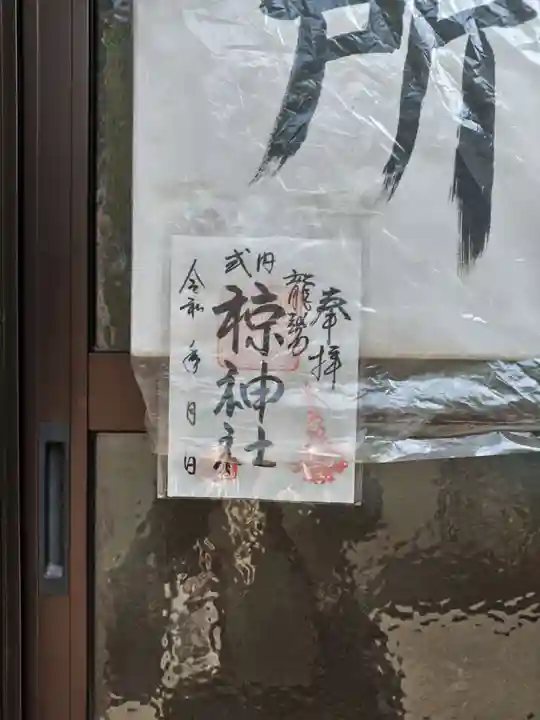 所
奉拝
龍勢
式内
椋神社
令和 年 月 日